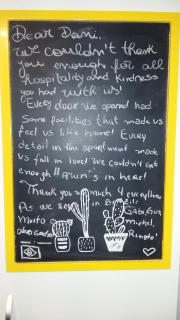 Dear Dani,
we couldn't thank
you enough for all
hospitality and kindness
you had with us!
Every door we opened had
some facilities that made us
feel us like home! Every
detail in the apartment made
us fall in love! We couldn't eat
enough M's in here!
Thank you so much 4 everything
As we say in Brazil:
Muito
obrigado
Gabi, Gui,
Michel,
Renato!